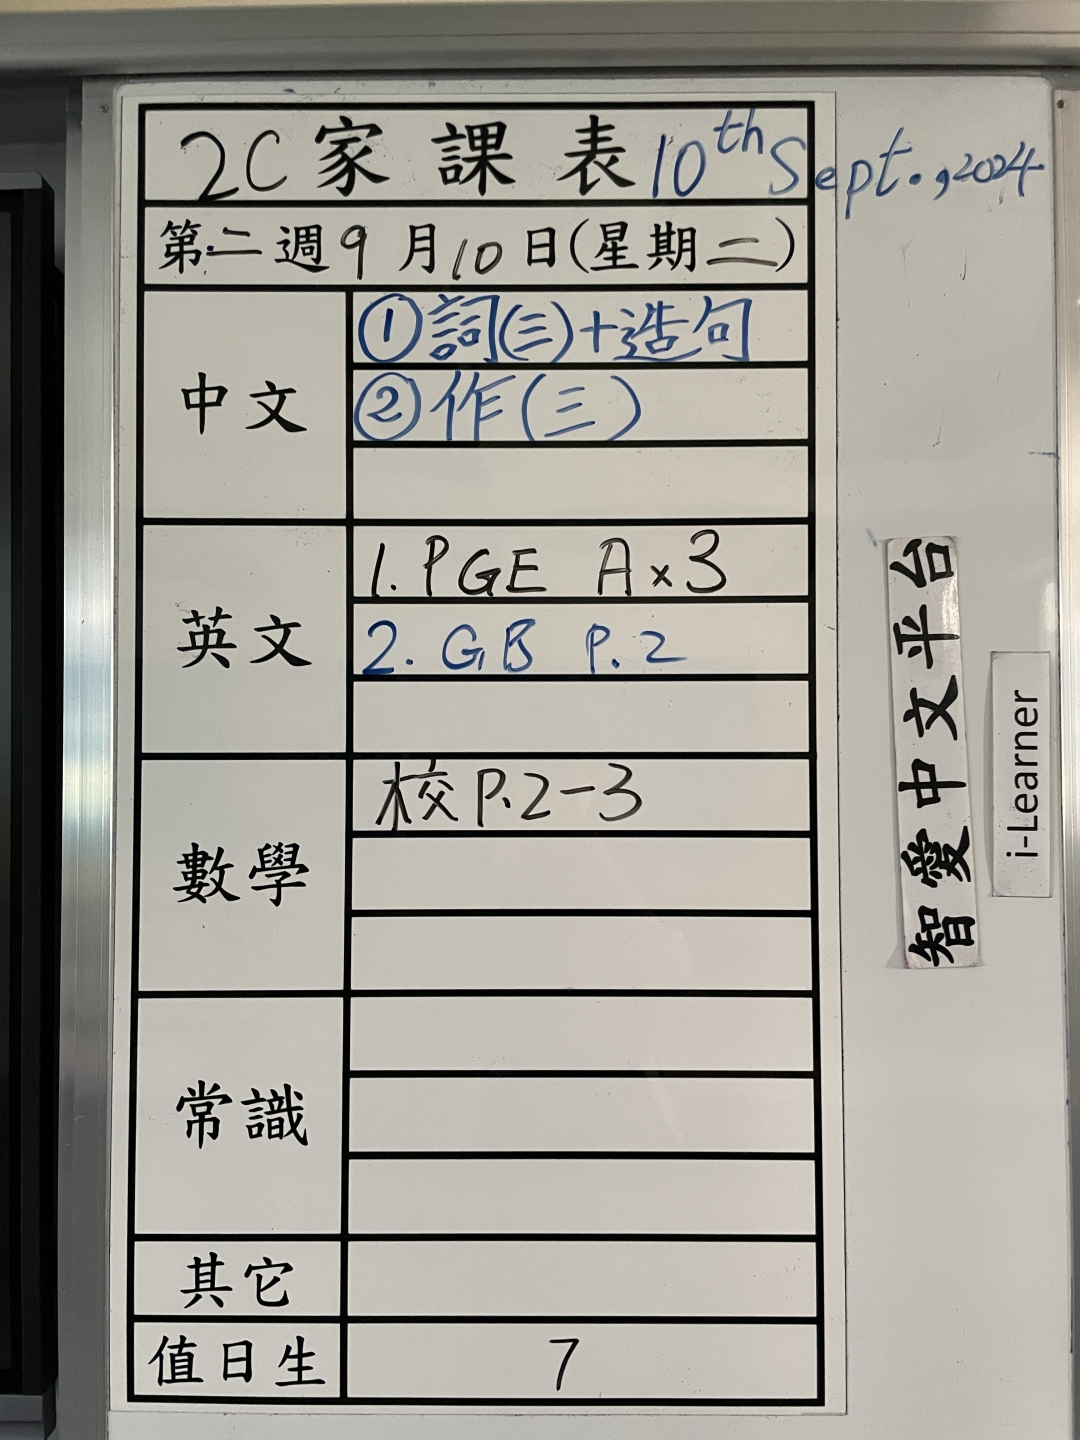 2C家課表 10th Sept., 2024
第二週9月10日(星期二)
中文
①詞(三)+造句
②作(三)
英文
1. PGE A×3
2. GB P.2
數學
校P.2-3
常識
其它
值日生
7
智愛中文平台
i-Learner